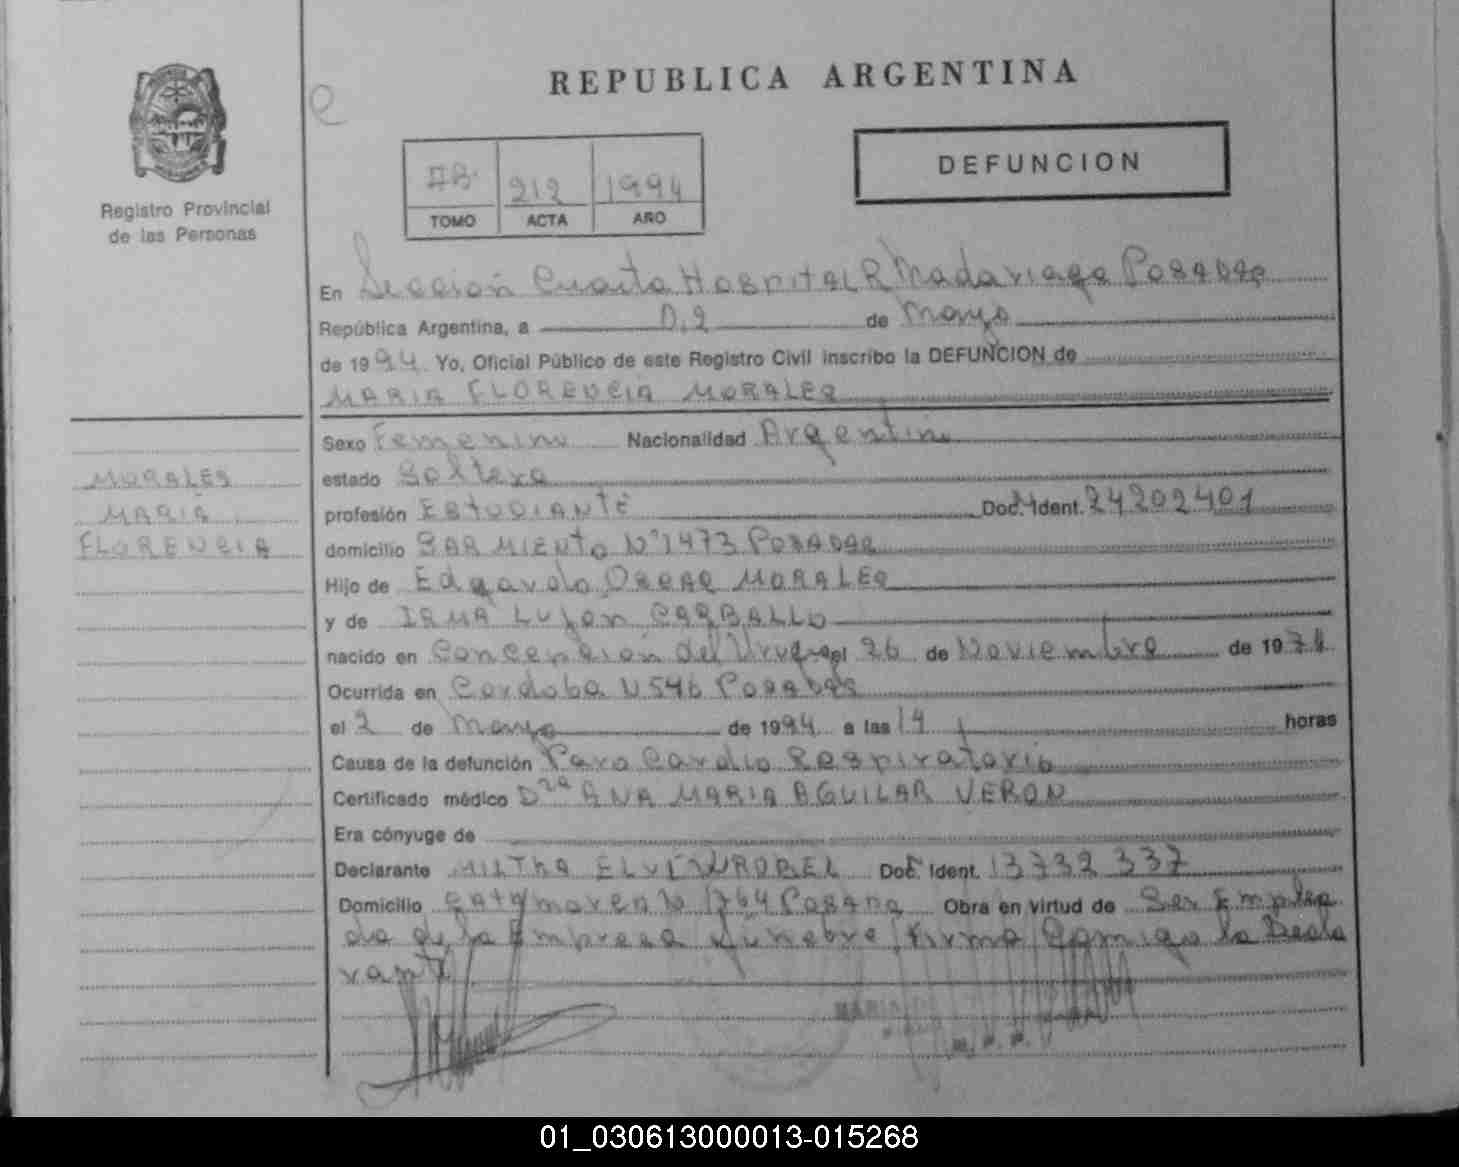 REPUBLICA ARGENTINA
Registro Provincial
de las Personas
DEFUNCION
212 1994
TOMO ACTA AÑO
En Sección Cuarta Hospital R Madariaga Posadas
República Argentina, a 02 de Mayo
de 1994 Yo, Oficial Público de este Registro Civil inscribo la DEFUNCION de
MARIA FLORENCIA MORALES
MORALES
MARIA
FLORENCIA
Sexo Femenino Nacionalidad Argentina
estado Soltera
profesión ESTUDIANTE Doc. Ident. 24202401
domicilio SARMIENTO Nº 1473 POSADAS
Hijo de Edgardo Oscar MORALES
y de IRMA Lujan CARBALLO
nacido en Concepcion del Uruguay el 26 de Noviembre de 1974
Ocurrida en Cordoba N 546 POSADAS
el 2 de Mayo de 1994 a las 14 horas
Causa de la defunción Paro Cardio Respiratorio
Certificado médico Dra ANA MARIA AGUILAR VERON
Era cónyuge de
Declarante MILTHA Doc. Ident. 13732337
Domicilio 1764 Posadas Obra en virtud de Ser Emplea
da de la Empresa Funebre, firma conmigo la Decla
rante
01_030613000013-015268